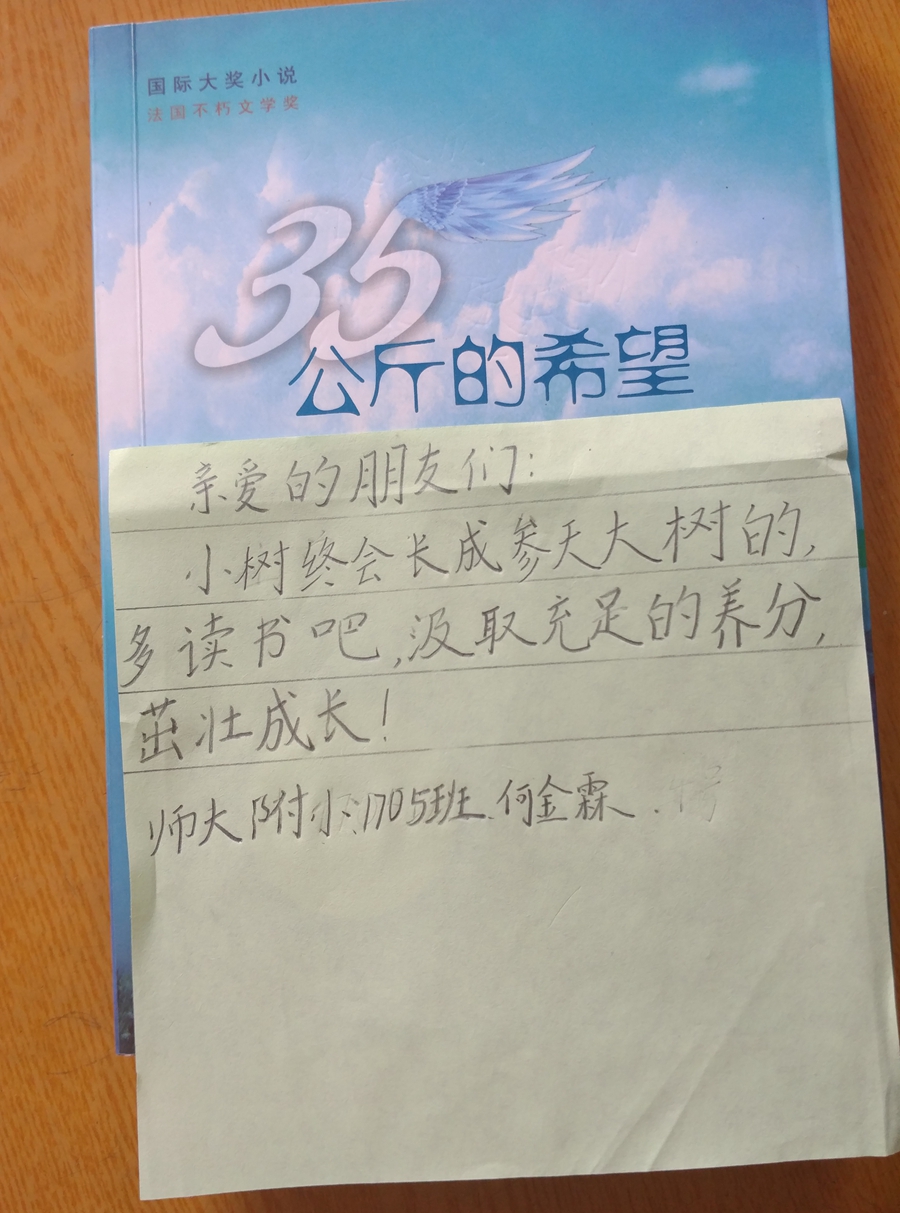 国际大奖小说
法国不朽文学奖
35
公斤的希望
亲爱的朋友们:
小树终会长成参天大树的,
多读书吧,汲取充足的养分,
茁壮成长!
师大附小1705班 何金霖